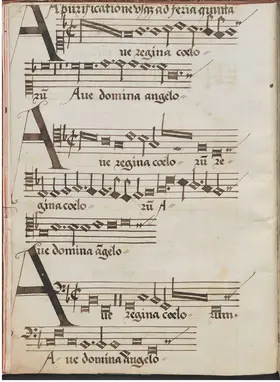 A purificatione vsq3 ad feria quinta
Aue regina coelo
rū Aue domina angelo
Aue regina coelo rū re
gina coelo rū A
Aue domina āgelo
Aue regina coelo rum
A ue domina angelo